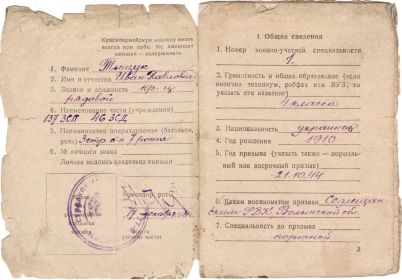 Красноармейскую книжку иметь
всегда при себе. Не имеющих
книжек — задерживать.
1. Фамилия
2. Имя и отчество Иван Павлович
3. Звание и должность кр-ц
рядовой
4. Наименование части (учреждения)
137 ЗСП 46 ЗСД
5. Наименование подразделения (батальон,
рота) 7 рота
6. № личного знака
Личная подпись владельца книжки
Командир
19 декабря
I. Общие сведения
1. Номер военно-учетной специальности
1.
2. Грамотность и общее образование (если
окончил техникум, рабфак или ВУЗ, то
указать его название)
4 класса
3. Национальность украинец
4. Год рождения 1910
5. Год призыва (указать также — нормаль-
ный или досрочный призыв)
21.10.44
6. Каким военкоматом призван
ским РВК, Волынской об.
7. Специальность до призыва
портной
3